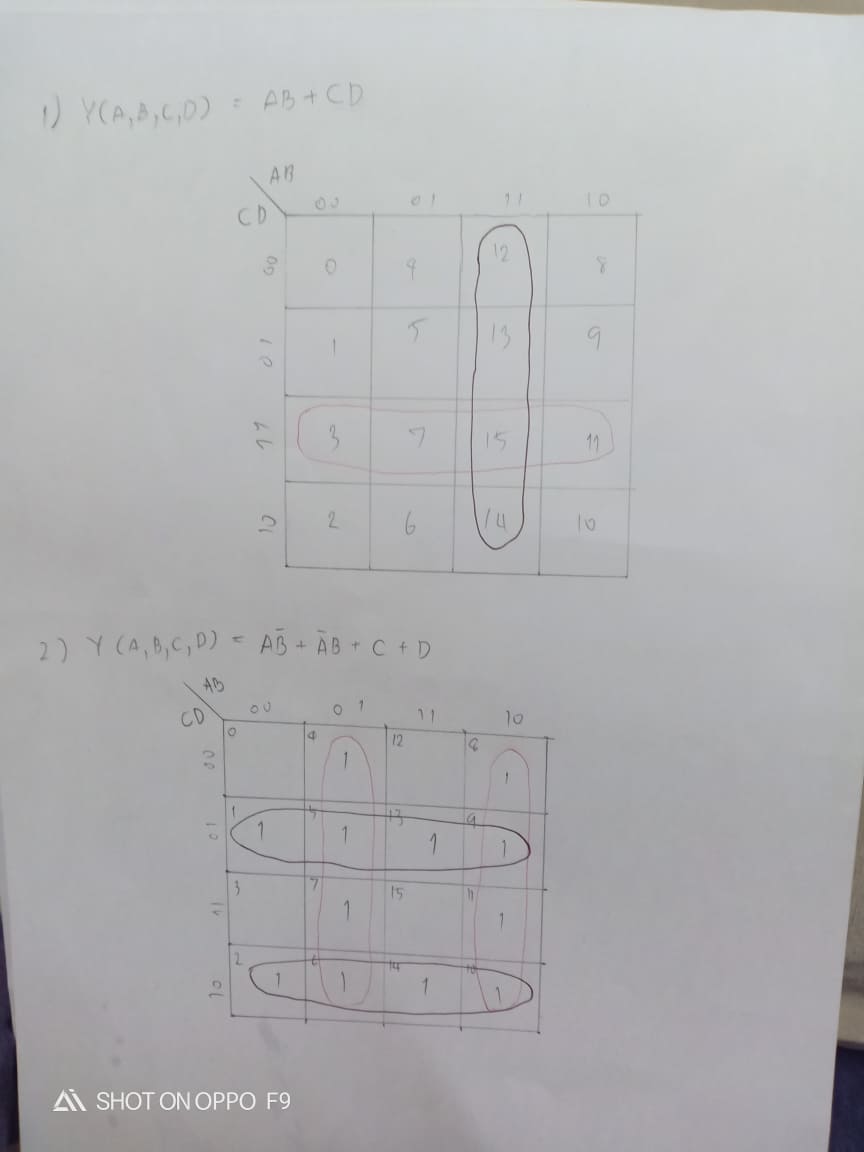 1) Y(A,B,C,D) = AB + CD
AB
CD
00 01 11 10
00 0 4 12 8
01 1 5 13 9
11 3 7 15 11
10 2 6 14 10
2) Y (A,B,C,D) = AB̄ + ĀB + C + D
AB
CD
00 01 11 10
0 4 12 8
00 1 1
1 5 13 9
01 1 1 1 1
3 7 15 11
11 1 1
2 6 14 10
10 1 1 1 1
SHOT ON OPPO F9